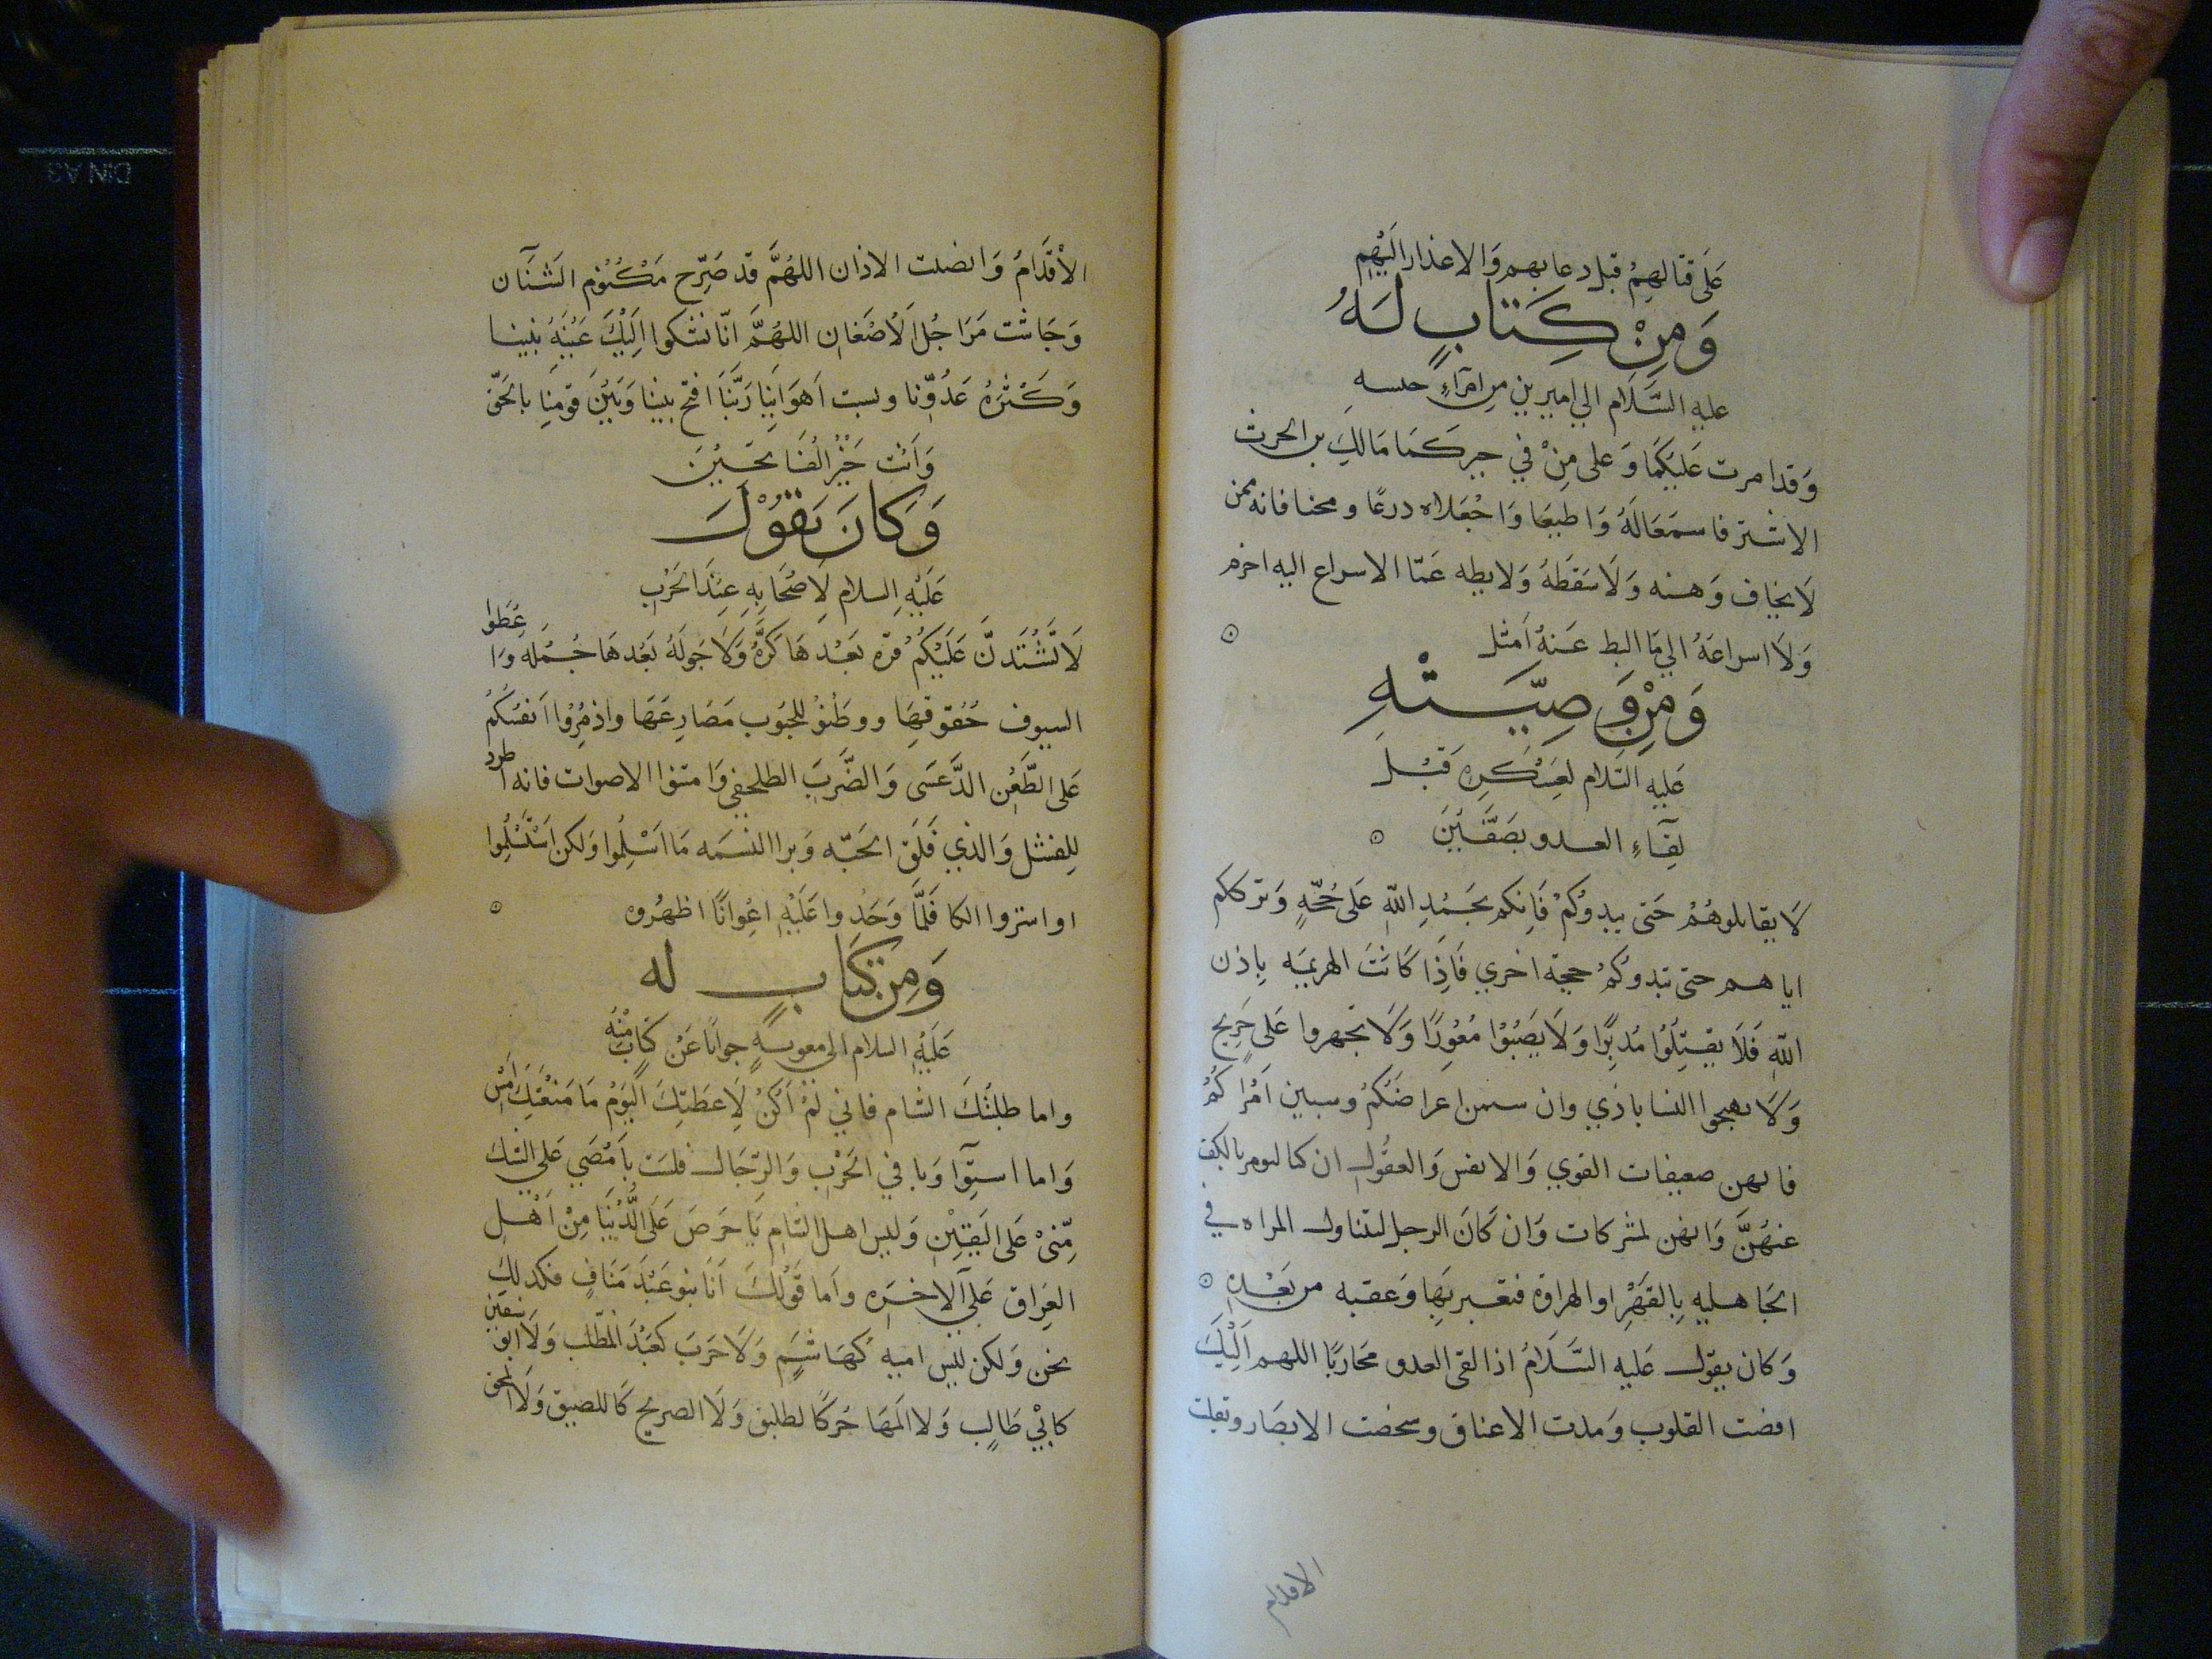 عَلَى قتالهِمْ قبل دعايهم وَالاعذار اليَهْمِ
وَمِنْ كِتَابٍ لَهُ
عليهِ السَّلَام الي اميرين من امَرَاءِ حلسه
وَقد امرت عَليَكمَا وَعلى مِنْ في حيركَمَا مَالكِ بن الحرث
الاشتر فاسمعَا لَهُ وَاطيعَا وَاجْعَلاه درعًا ومحنا فانه ممن
لَا يخاف وَهنه وَلَا سَقطَهُ وَلا بطه عَمّا الاسراع اليه احزم
وَلَا اسراعَهُ الي مَا البط عَنهُ اَمثل
وَمِنْ وَصِيَّتْهِ
عَليهِ السَّلام لعَسْكَرِهِ قبْل
لِقَآءِ العدو بصَفَّيْنَ
لَا يقاتلوهُمْ حَتى يبدوُكُمْ فَاِنكم بحَمْدِ اللهِ عَلى حُجّهٍ وَترككم
اياهم حتى تبدوُكمُ حجة اخري فَاِذَا كَانتَ الهزيمَه بِاذن
اللهِ فَلَا تقْتِلُوُا مُدبِرًا وَلَا يَصَبُوُا مُعْوِرًا وَلَا تجهروا عَلى جَرِيح
وَلَا تهيجوا النسا باذي وان سمن اعراضَكُمُ وسببن اَمْرَاكُمْ
فانهن ضعيفات القوي وَالانفس وَالعقُول ان كنا لنومر بالكف
عنهُنَّ وَانهن لمشركات وَان كَانَ الرجل ليتناول المراه في
الجَاهليه بِالقهَرْ اوالهراوة فتعير بِهَا وَعقبه من بَعْدِهِ
وَكان يقول عَليه السَّلَامُ اذا لقى العدو محَاربًا اللهم اِلَيْكَ
افضت القلوب وَمدت الاعناق وسخصت الابصَار ونقلت
الاقدام
الاَقْدَامُ وَانضلت الابدان اللهُمَّ قد صَرّحَ مَكْنُوُم الشَنَآن
وَجَاشت مَرَاجُل الَاضْغان اللهُمَّ اِنّا نشكوا اِليْكَ غَيْبَهِ نبينا
وَكَثْرَهُ عَدُوّنا وتست اَهوَاينَا رَبَّنَا افتح بيننا وَبَيْنَ قوَمنِا بالحَقّ
وَاَنت خَيْرُ الفَاتحَيْنَ
وَكَانَ يَقوُلَ
عَلَيْهِ السلام لِاصْحَابِهِ عِنْدَ الحَرْبِ
لَا تَشْتَدنَّ عَلَيْكُمُ فرّه بعَدْهَا كَرَّهُ وَلَا جَولَهُ بَعْدهَا حُمْلَه وَاعَطوا
السيوف حُقوقهَا ووطَنوُ للجنُوب مَصَارِعَهَا واذمِرُوا اَنفسُكُمْ
عَلى الطَّعْن الدَّعسَى وَالضَّربَ الطلحفي وَامتنوا الاصوات فانه اطرد
للِفشل وَالذي فَلَق الحَبّه وَبرا النسَمه مَا اسْلِموا وَلكن اسْتَسْلُمِوا
اواسروا الكا فَلَمَّا وَجَدِوا عَلَيْهِ اعْوانًا اظهرُوه
وَمِن كَتابٍ له
عَلَيْهِ السلام الى معويهٍ جوابًا عَنْ كتاب مْنهُ
واما طلبُكَ الشام فاني لمْ اَكُنْ لِاَعطيَكَ اليَوْمُ مَا مَنعْتَكِ اَمْسَ
وَاما استوَآونا في الحَرْب وَالرّجَال فلسَت بِاَمْضَي عَلى الشك
مِنّىْ عَلى اليَقيْنِ وَليس اهل الشام بَاحَرصَ عَلى الدُّنيَا مِنْ اَهْل
العِرَاق عَلى الآخرَه واَما قوَلُكَ اَنَا بنو عَبْد مَنَاف فكدلكِ
نحن وَلكن ليس اميه كهَاشم وَلَا حَربَ كعَبْدَ المُطّلب وَلَا ابوُ سفين
كابيْ طَالب وَلا المَهَاجركًا لطليق وَلَا الصريح كَاللصيق وَلَا المحق